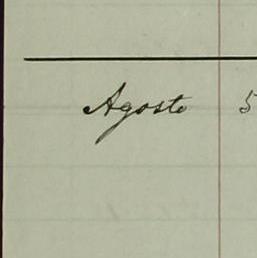 Agosto 5